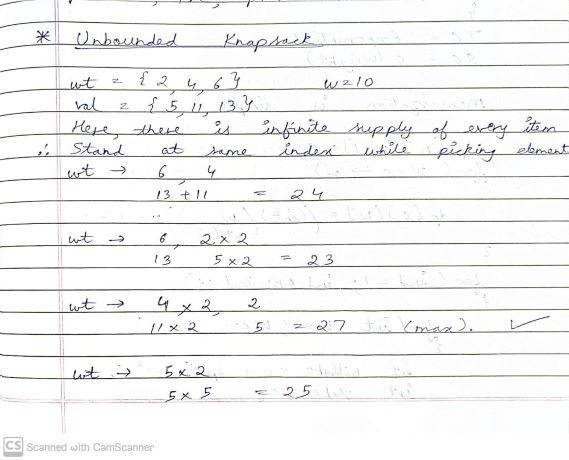 * Unbounded Knapsack
wt = { 2, 4, 6 } W = 10
val = { 5, 11, 13 }
Here, there is infinite supply of every item
∴ Stand at same index while picking element
wt → 6, 4
13 + 11 = 24
wt → 6, 2 x 2
13 5 x 2 = 23
wt → 4 x 2, 2
11 x 2 5 = 27 (max). ✓
wt → 5 x 2
5 x 5 = 25
CS Scanned with CamScanner